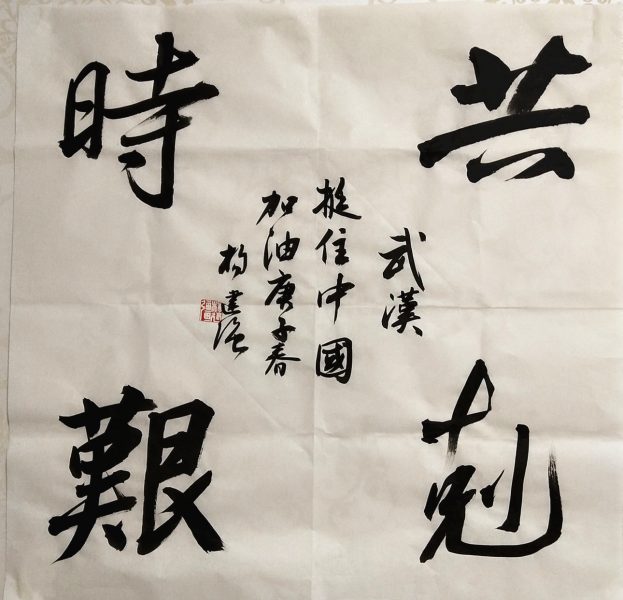 共剋
時艱
武漢
挺住中國
加油庚子春
杨建强